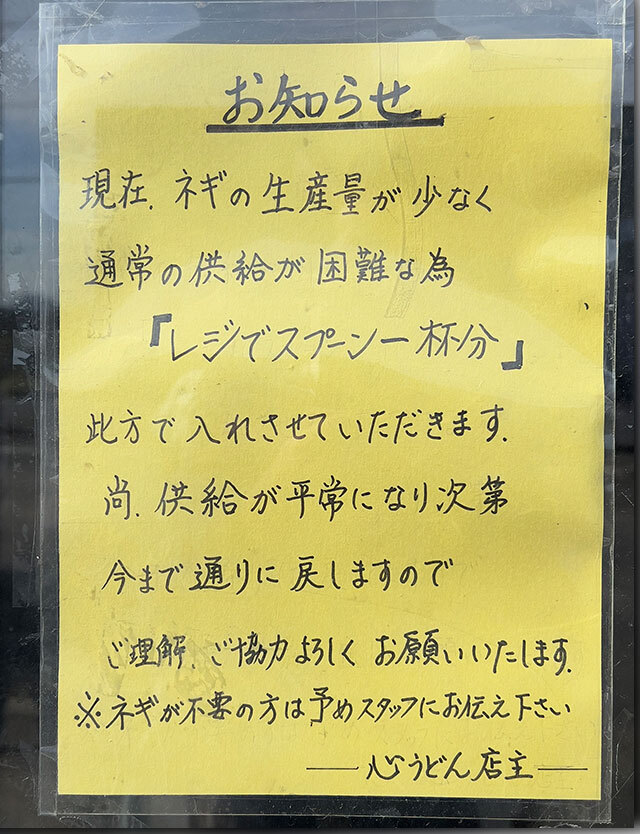 お知らせ
現在、ネギの生産量が少なく
通常の供給が困難な為
「レジでスプーン一杯分」
此方で入れさせていただきます。
尚、供給が平常になり次第
今まで通りに戻しますので
ご理解、ご協力よろしくお願いいたします。
※ネギが不要の方は予めスタッフにお伝え下さい
――心うどん店主――